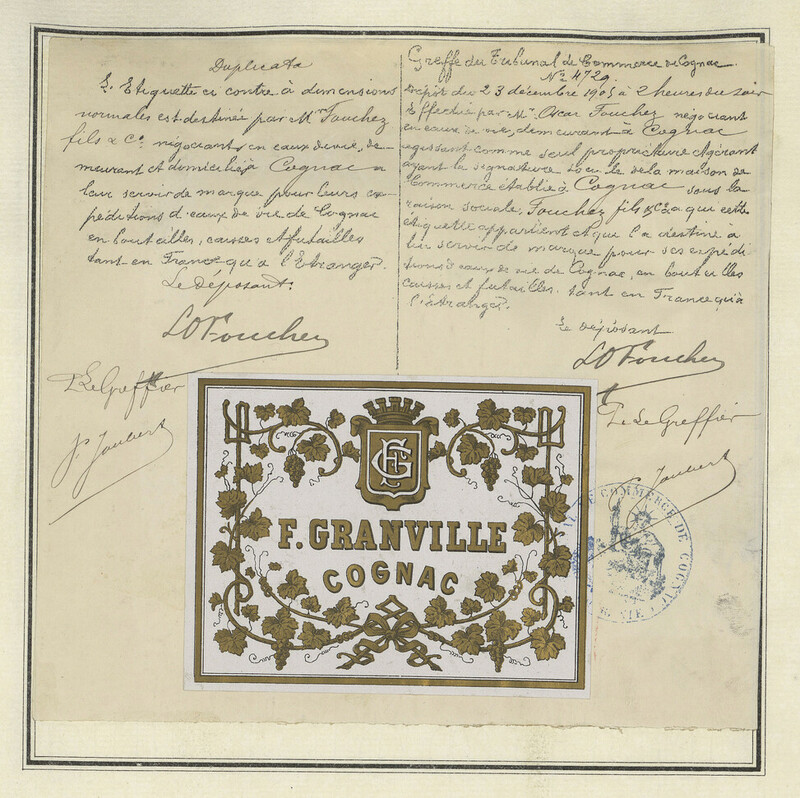 Duplicata
L'Etiquette ci contre à dimensions
normales est destinée par Mrs Fouchez
fils & Co négociants en eaux de vie, de-
meurant et domiciliés à Cognac a
leur servir de marque pour leurs ex-
péditions d'eaux de vie de Cognac
en bouteilles, caisses et futailles
tant en France qu'à l'Etranger.
Le Déposant.
LO Fouchez
P. Le Greffier
J. Joubert
Greffe du Tribunal de Commerce de Cognac.
No 4729.
Dépôt du 23 décembre 1905 à 2 heures du soir
Effectué par Mr. Oscar Fouchez négociant
en eaux de vie, demeurant à Cognac
agissant comme seul propriétaire & gérant
ayant la signature sociale de la maison de
Commerce établie à Cognac sous la
raison sociale, Fouchez fils & Co a qui cette
étiquette appartient et qui l'a destiné à
lui servir de marque pour ses expédi-
tions d'eaux de vie de Cognac, en bouteilles
caisses et futailles, tant en France qu'à
l'Etranger.
Le déposant
LO Fouchez
P. Le Greffier
J. Joubert
F. GRANVILLE
COGNAC
DE COMMERCE DE COGNAC